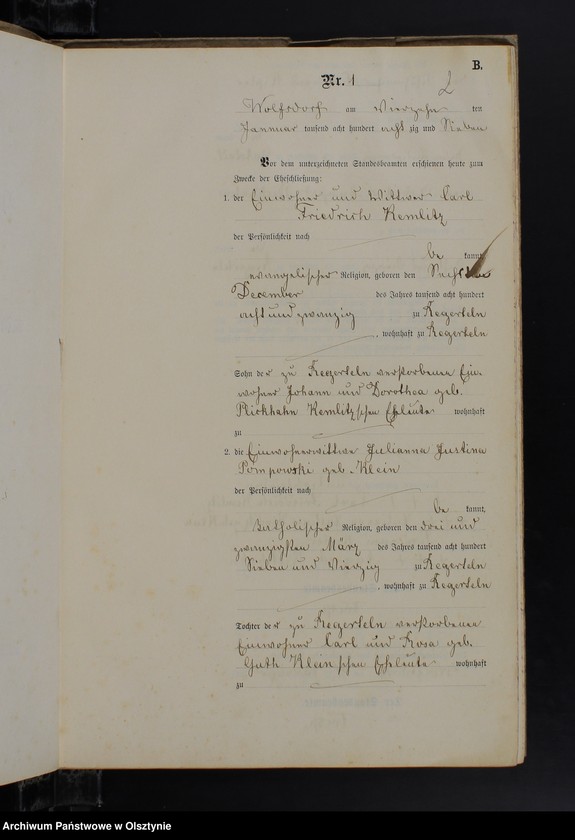 B.
Nr. 1
2
Wolfsdorf am Vierzehn ten
Januar tausend acht hundert acht zig und Sieben
Vor dem unterzeichneten Standesbeamten erschienen heute zum
Zwecke der Eheschließung:
1. der Einwohner und Wittwer Carl
Friedrich Kemlitz
der Persönlichkeit nach
be kannt,
evangelischer Religion, geboren den Sechsten
December des Jahres tausend acht hundert
acht und zwanzig zu Regerteln
, wohnhaft zu Regerteln
Sohn der zu Regerteln verstorbenen Ein-
wohner Johann und Dorothea geb.
Kemlitz'schen Eheleute wohnhaft
zu
2. die Einwohnerwittwe Julianna Justina
Pompowski geb. Klein
der Persönlichkeit nach
be kannt,
katholischer Religion, geboren den drei und
zwanzigsten März des Jahres tausend acht hundert
Sieben und Vierzig zu Regerteln
, wohnhaft zu Regerteln
Tochter der zu Regerteln verstorbenen
Einwohner Carl und Rosa geb.
Guth Klein'schen Eheleute wohnhaft
zu
Archiwum Państwowe w Olsztynie